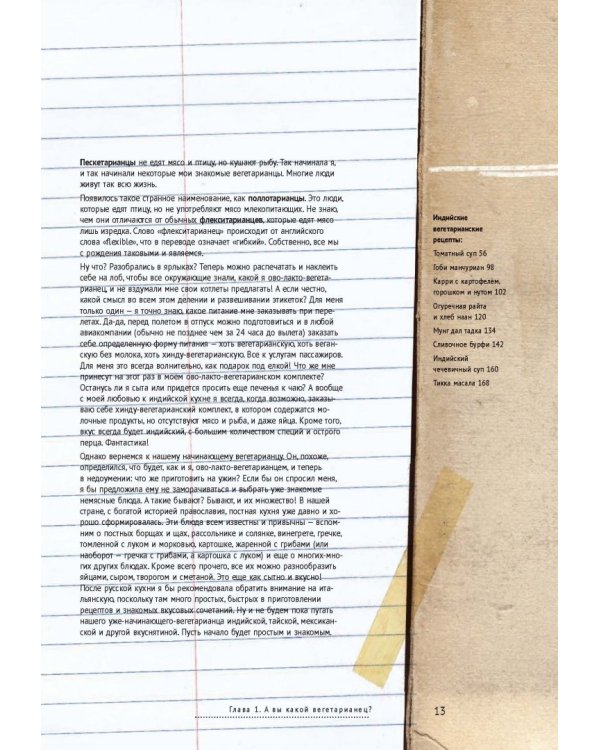 Пескетарианцы не едят мясо и птицу, но кушают рыбу. Так начинала я,
и так начинали некоторые мои знакомые вегетарианцы. Многие люди
живут так всю жизнь.
Появилось такое странное наименование, как поллотарианцы. Это люди,
которые едят птицу, но не употребляют мясо млекопитающих. Не знаю,
чем они отличаются от обычных флекситарианцев, которые едят мясо
лишь изредка. Слово «флекситарианец» происходит от английского
слова «flexible», что в переводе означает «гибкий». Собственно, все мы
с рождения таковыми и являемся.
Ну что? Разобрались в ярлыках? Теперь можно распечатать и наклеить
себе на лоб, чтобы все окружающие знали, какой я ово-лакто-вегета-
рианец, и не вздумали мне свои котлеты предлагать! А если честно,
какой смысл во всем этом делении и развешивании этикеток? Для меня
только один – я точно знаю, какое питание мне заказывать при пере-
летах. Да-да, перед полетом в отпуск можно подготовиться и в любой
авиакомпании (обычно не позднее чем за 24 часа до вылета) заказать
себе определенную форму питания – хоть вегетарианскую, хоть веган-
скую без молока, хоть хинду-вегетарианскую. Все к услугам пассажиров.
Для меня это всегда волнительно, как подарок под елкой! Что же мне
принесут на этот раз в моем ово-лакто-вегетарианском комплекте?
Останусь ли я сыта или придется просить еще печенья к чаю? А вообще
с моей любовью к индийской кухне я всегда, когда возможно, заказы-
ваю себе хинду-вегетарианский комплект, в котором содержатся мо-
лочные продукты, но отсутствуют мясо и рыба, и даже яйца. Кроме того,
вкус всегда будет индийский, с большим количеством специй и острого
перца. Фантастика!
Однако вернемся к нашему начинающему вегетарианцу. Он, похоже,
определился, что будет, как и я, ово-лакто-вегетарианцем, и теперь
в недоумении: что же приготовить на ужин? Если бы он спросил меня,
я бы предложила ему не заморачиваться и выбрать уже знакомые
немясные блюда. А такие бывают? Бывают, и их множество! В нашей
стране, с богатой историей православия, постная кухня уже давно и хо-
рошо сформировалась. Эти блюда всем известны и привычны – вспом-
ним о постных борщах и щах, рассольнике и солянке, винегрете, гречке,
томленной с луком и морковью, картошке, жаренной с грибами (или
наоборот – гречка с грибами, а картошка с луком) и еще о многих-мно-
гих других блюдах. Кроме всего прочего, все их можно разнообразить
яйцами, сыром, творогом и сметаной. Это еще как сытно и вкусно!
После русской кухни я бы рекомендовала обратить внимание на ита-
льянскую, поскольку там много простых, быстрых в приготовлении
рецептов и знакомых вкусовых сочетаний. Ну и не будем пока пугать
нашего уже-начинающего-вегетарианца индийской, тайской, мексикан-
ской и другой вкуснятиной. Пусть начало будет простым и знакомым.
Индийские
вегетарианские
рецепты:
Томатный суп 56
Гоби манчуриан 98
Карри с картофелем,
горошком и нутом 102
Огуречная райта
и хлеб наан 120
Мунг дал тадка 134
Сливочное бурфи 142
Индийский
чечевичный суп 160
Тикка масала 168
Глава 1. А вы какой вегетарианец?
13